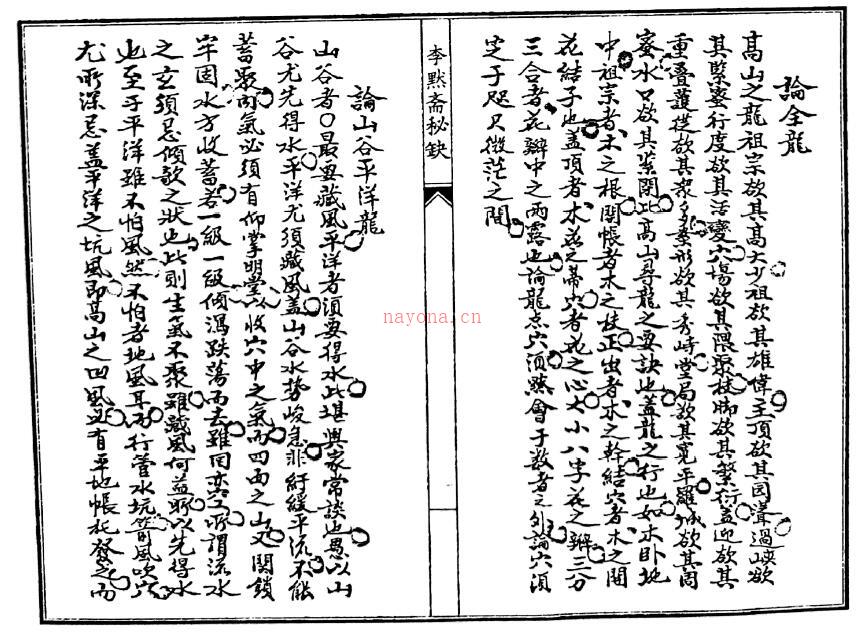 論全龍
高山之龍祖宗欲其高大少祖欲其雄偉主頂欲其圓聳過峽欲
其緊蜜行度欲其活變穴場欲其隈聚枝脚欲其繁衍蓋迎欲其
重疊護從欲其衆多案形欲其秀峙堂局欲其寬平羅城欲其周
蜜水口欲其紧関此高山尋龍之要訣也蓋龍之行也如木卧地
中祖宗者木之根開帳者木之枝正出者木之幹結穴者木之開
花結子也蓋頂者木花之蒂穴者花之心大小八字花之瓣三分
三合者花瓣中之雨露也論龍点穴須黙會于数者之外論穴須
定于咫尺微茫之間
李黙斋秘缺
論山谷平洋龍
山谷者最要藏風平洋者須要得水此堪輿家常談也愚以山
谷尤先得水平洋尤須藏風盖山谷水势峻急非紆緩平流不能
蓄聚内氣必須有仰掌明堂以收穴中之氣而四面之山又関鎖
牢固水方收蓄若一級一級傾瀉跌蕩而去雖回亦空所謂流水
之玄須忌傾欹之状也此則生氣不聚雖藏風何益所以先得水
也至于平洋雖不怕風然不怕者地風耳而行管水坑箭風吹穴
尤所深忌盖平洋之坑風即高山之凹風必有平地帳托發之而
nayona.cn